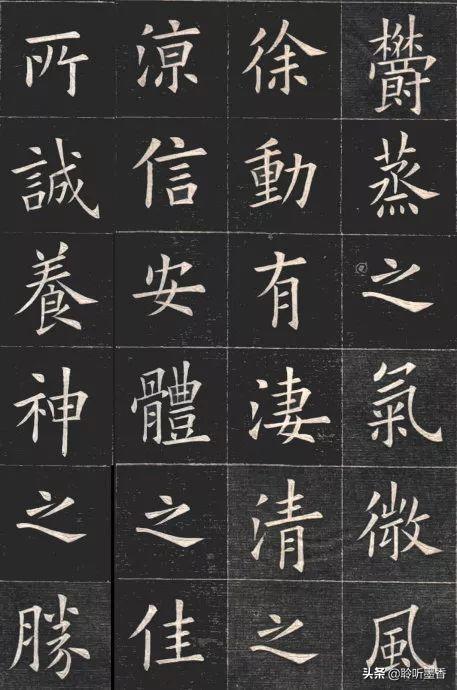 鬱蒸之氣微風
徐動有淒清之
涼信安體之佳
所誠養神之勝
头条 @聆听墨香